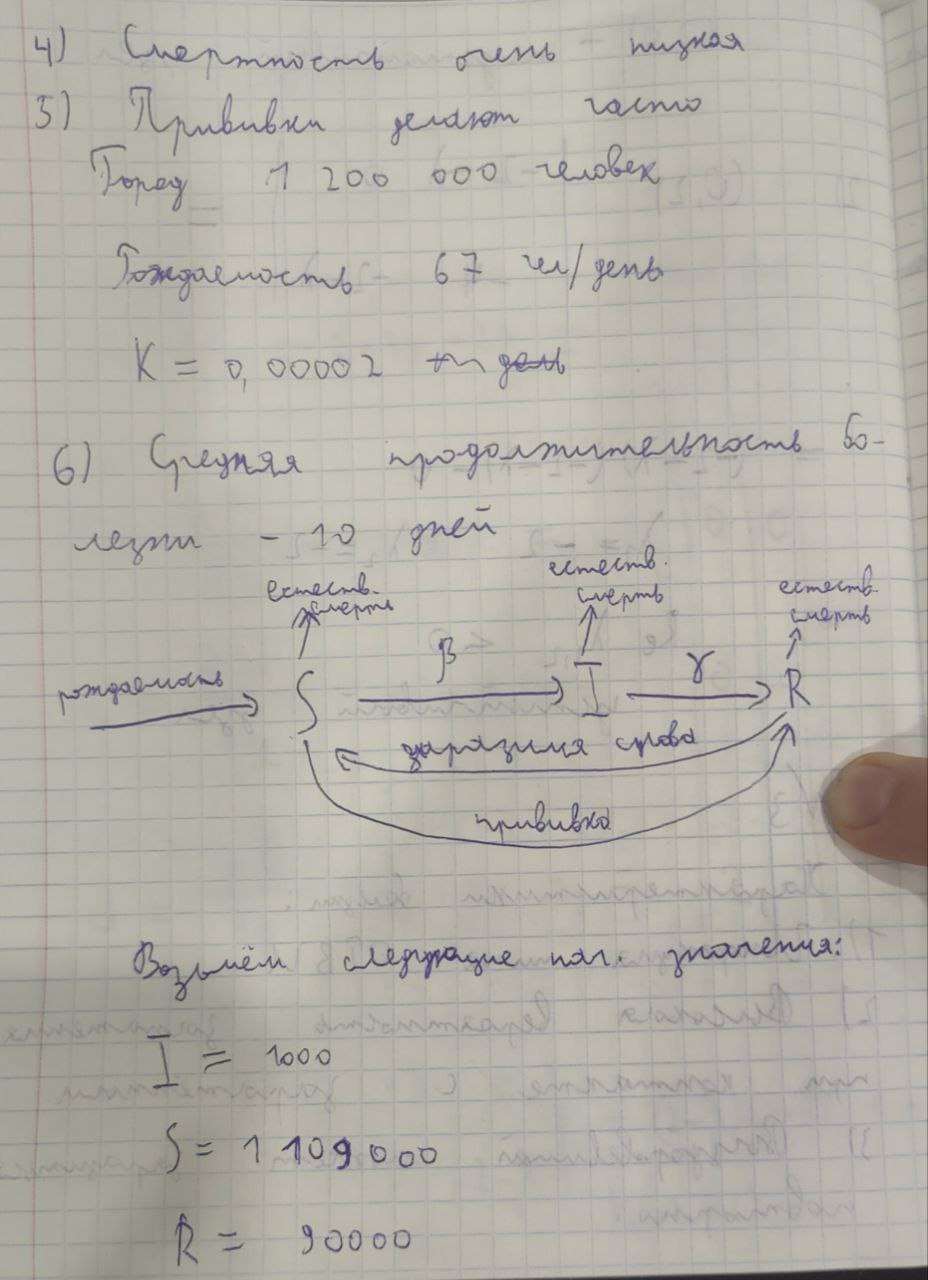 4) Смертность очень низкая
5) Прививки делают часто
Город 1 200 000 человек
Рождаемость - 67 чел/день
K = 0,00002
6) Средняя продолжительность бо-
лезни - 10 дней
естеств. смерть
естеств. смерть
естеств. смерть
рождаемость S β I γ R
заразился снова
прививка
Возьмём следующие нач. значения:
I = 1000
S = 1 109 000
R = 90000